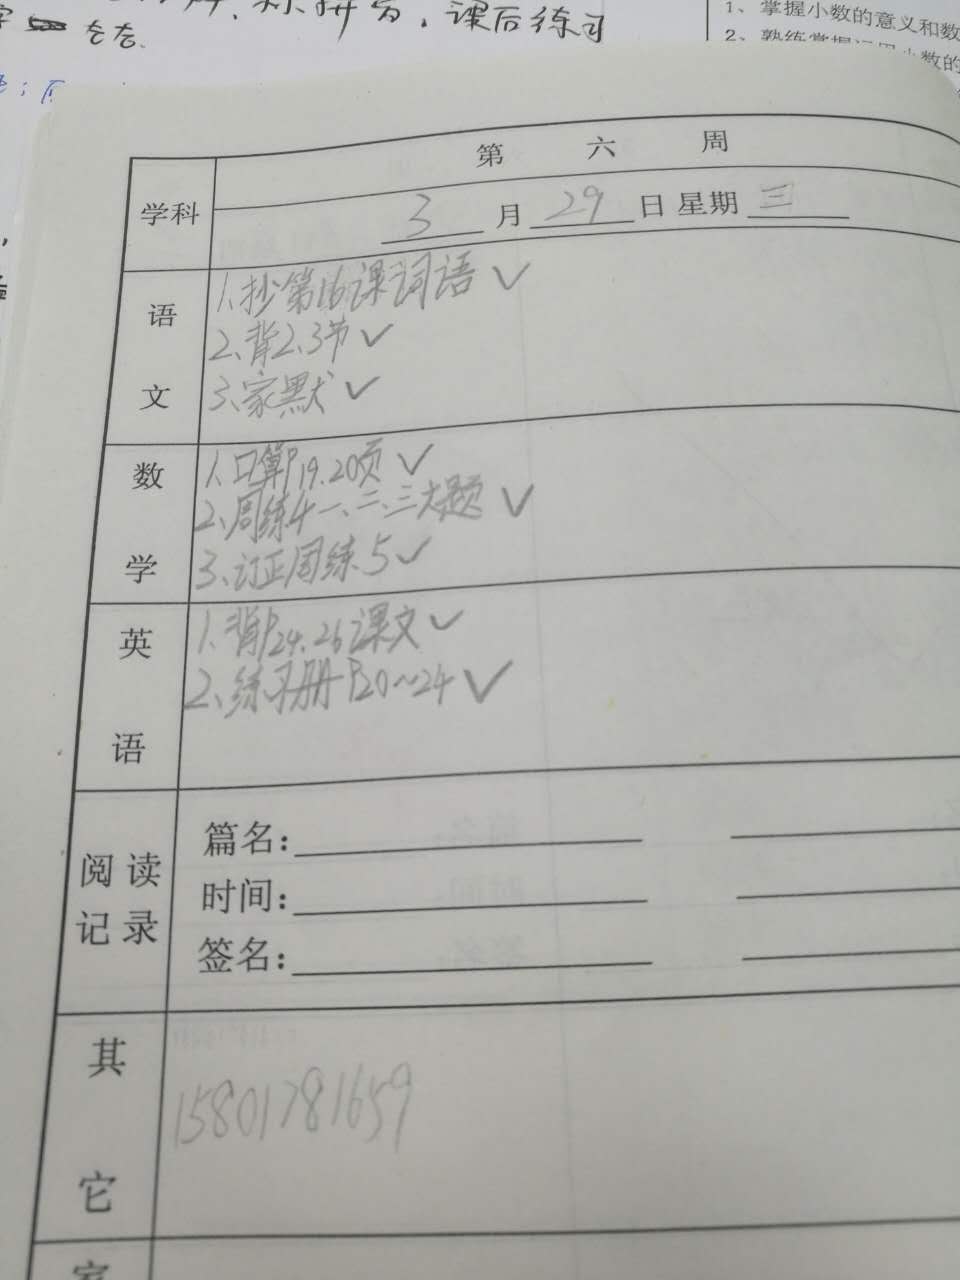 课后练习
1、掌握小数的意义和数
2、熟练掌握运用小数的
第 六 周
学科
3 月 29 日 星期 三
语文
1、抄第16课词语 ✓
2、背2、3节 ✓
3、家默 ✓
数学
1、口算P19.20页 ✓
2、周练4一、二、三大题 ✓
3、订正周练5 ✓
英语
1、背P24.26课文 ✓
2、练习册P20~24 ✓
阅读记录
篇名：
时间：
签名：
其它
15801781659
家